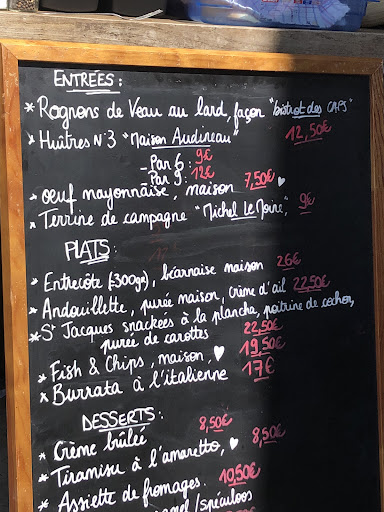 ENTREES :
* Rognons de Veau au lard, façon "bistrot des CAPS"
12,50€
* Huîtres N°3 "Maison Audineau"
- Par 6 : 9€
- Par 9 : 12€
* œuf mayonnaise, maison 7,50€ ♥
* Terrine de campagne "Michel Le Moine", 9€
PLATS :
* Entrecôte (±300gr), béarnaise maison 26€
* Andouillette, purée maison, crème d'ail 22,50€
* St Jacques snackées à la plancha, poitrine de cochon,
purée de carottes 22,50€
* Fish & Chips, maison, ♥ 19,50€
* Burrata à l'italienne 17€
DESSERTS :
* Crème brûlée 8,50€
* Tiramisu à l'amaretto, ♥ 8,50€
* Assiette de fromages. 10,50€
/spéculoos